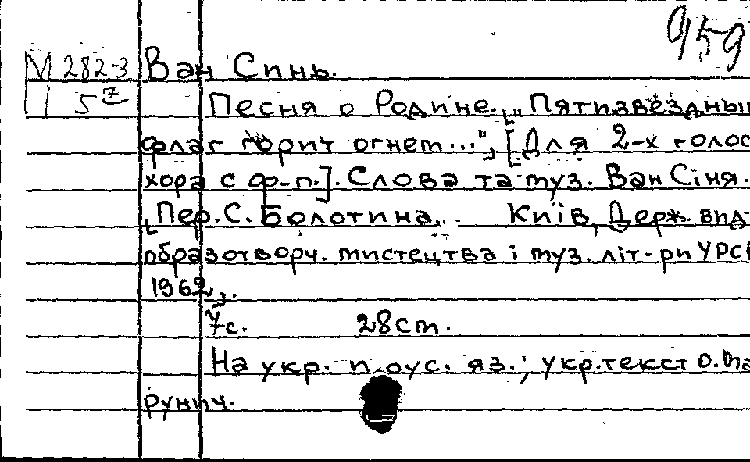 959
М 282-3 Ван Синь.
5 Песня о Родине. [„Пятизвёздный
флаг горит огнем...", [Для 2-х голос
хора с ф-п.]. Слова та муз. Ван Сіня.
[Пер. С. Болотина. Київ, Держ. вид
образотворч. мистецтва і муз. літ-ри УРСР
1962.
7с. 28 cm.
На укр. и рус. яз.; укр. текст О.
рунич.